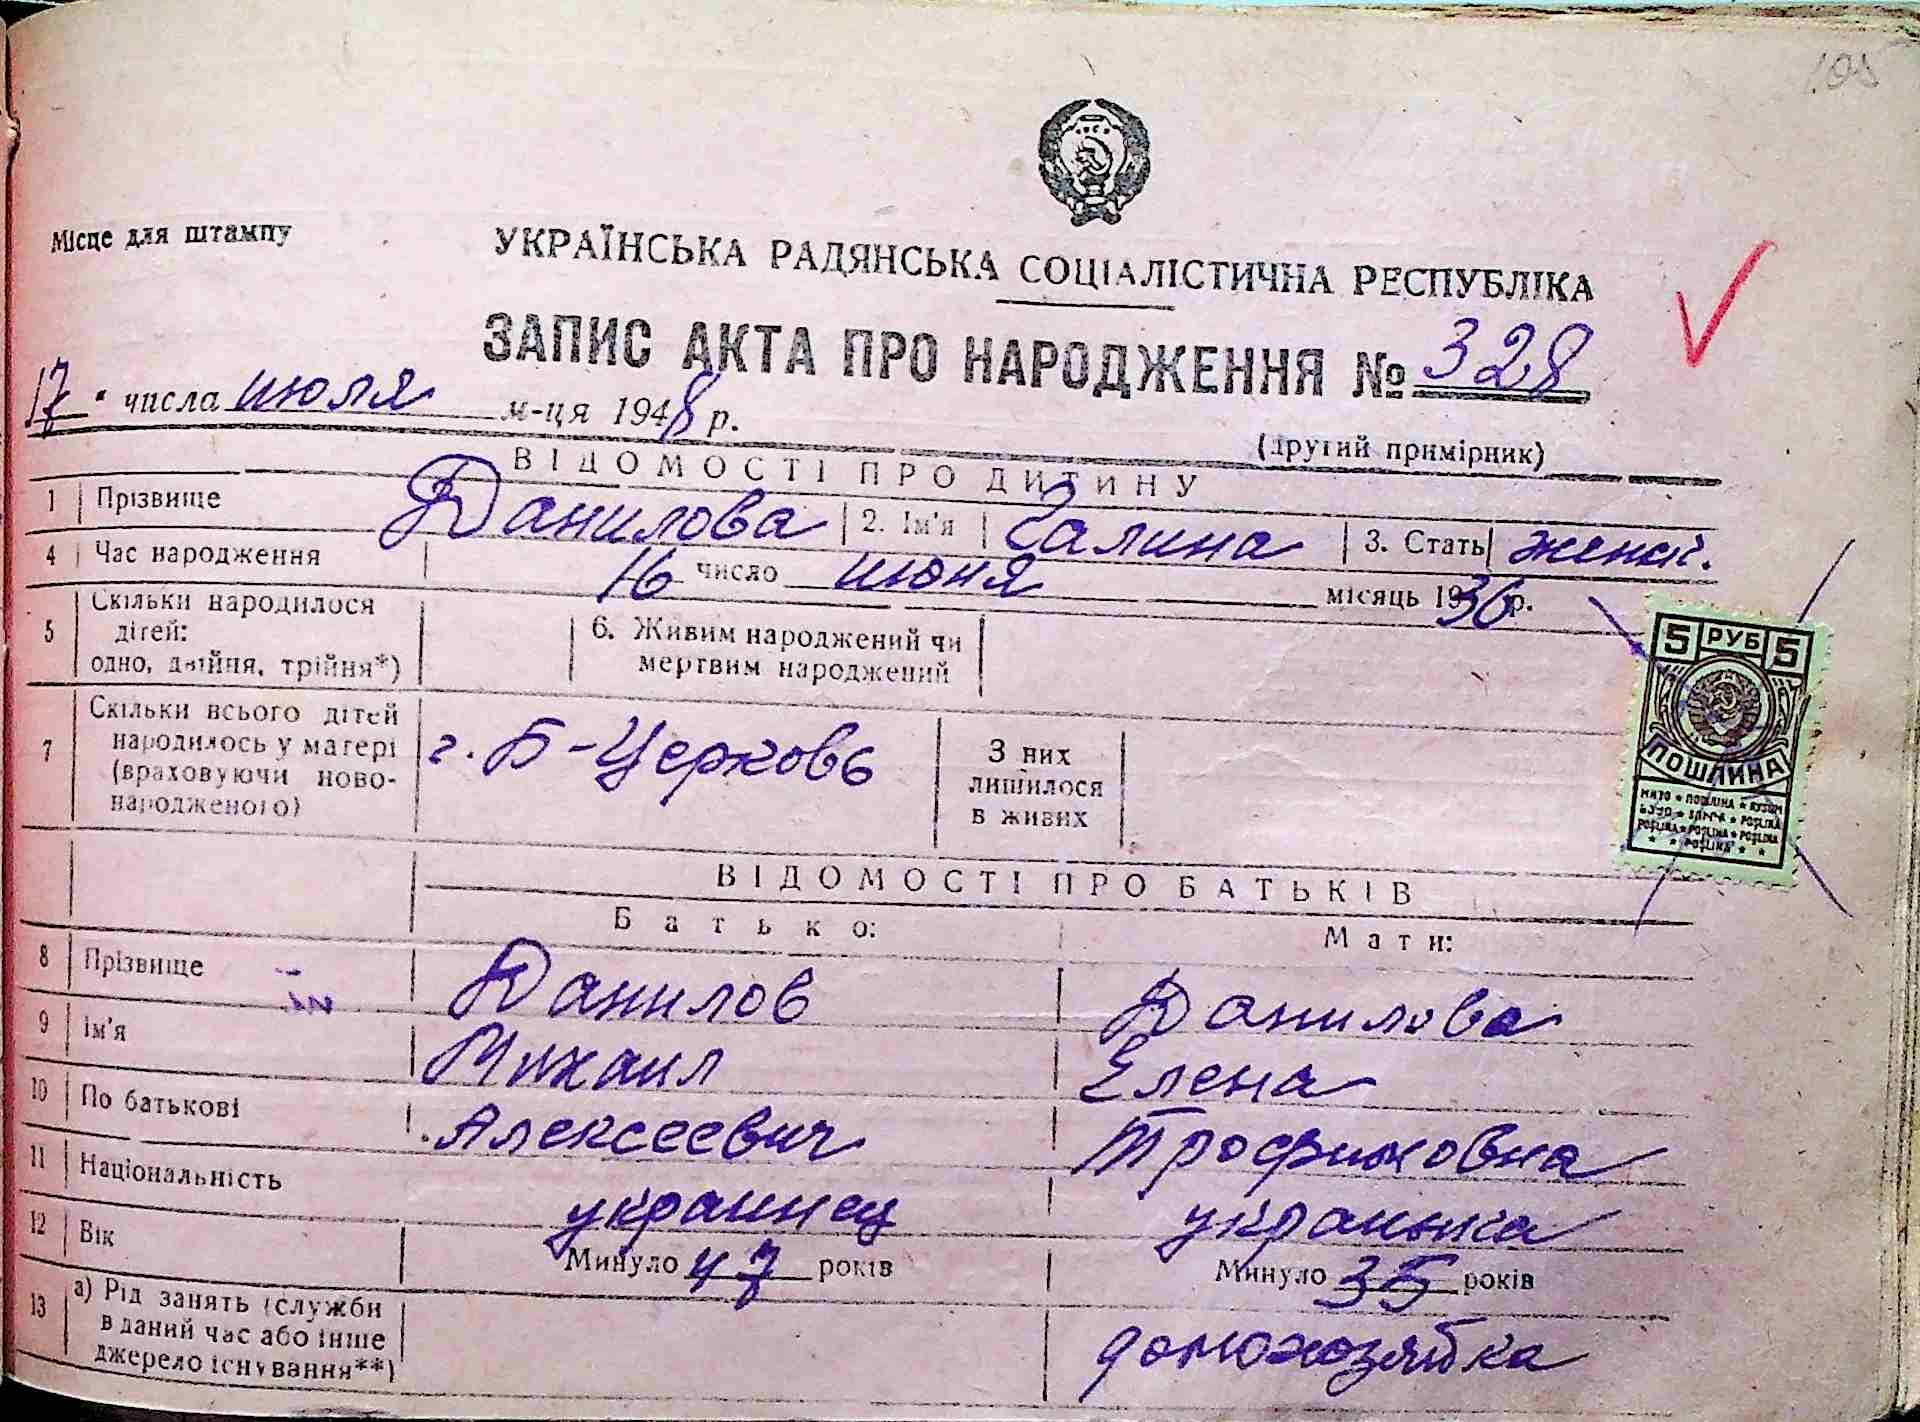 105
Місце для штампу
УКРАЇНСЬКА РАДЯНСЬКА СОЦІАЛІСТИЧНА РЕСПУБЛІКА
ЗАПИС АКТА ПРО НАРОДЖЕННЯ № 328
17 " числа июля м-ця 1948 р.
(другий примірник)
ВІДОМОСТІ ПРО ДИТИНУ
1 Прізвище Данилова 2. Ім'я Галина 3. Стать женск.
4 Час народження 16 число июня місяць 1936 р.
5 Скільки народилося дітей: одно, двійня, трійня*)
6. Живим народжений чи мертвим народжений
7 Скільки всього дітей народилось у матері (враховуючи ново-народженого) г. Б-Церковь З них лишилося в живих
5 РУБ 5
ПОШЛИНА
ВІДОМОСТІ ПРО БАТЬКІВ
Батько: Мати:
8 Прізвище Данилов Данилова
9 Ім'я Михаил Елена
10 По батькові Алексеевич Трофимовна
11 Національність украинец украинка
12 Вік Минуло 47 років Минуло 35 років
13 а) Рід занять (служби в даний час або інше джерело існування**) домохозяйка